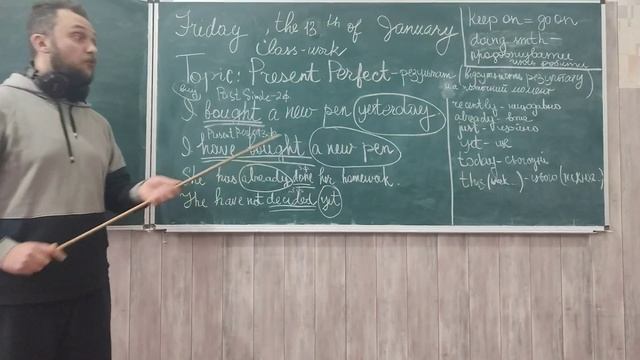 Friday, the 13th of January
Class-work
Topic: Present Perfect - результат (відсутність результату)
на поточний момент
buy Past Simple - 2ф
I bought a new pen yesterday
Present Perfect
I have bought a new pen
She has already done her homework.
The have not decided yet
keep on = go on
doing smth =
продовжувати
щось робити
recently - нещодавно
already - вже
just - щойно
yet - ще
today - сьогодні
this (week...) - цього (тижня...)